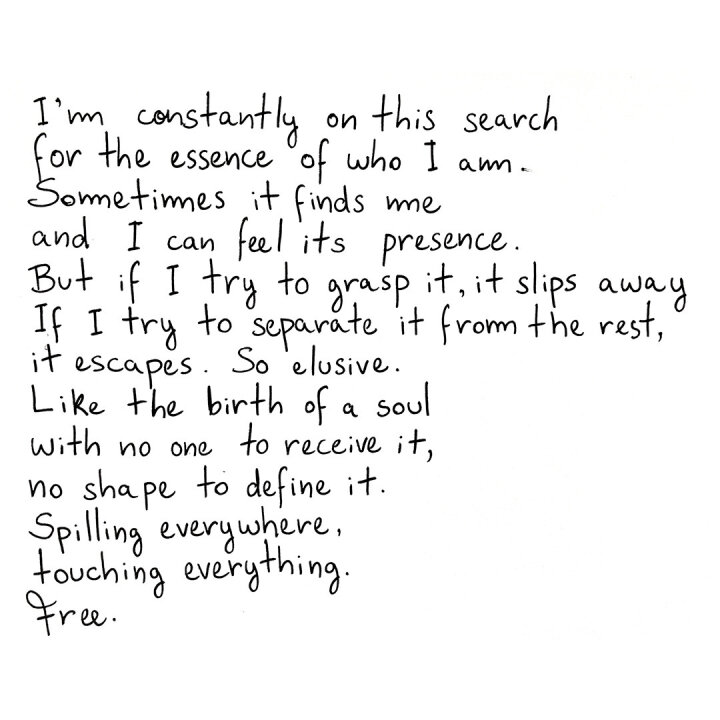 I'm constantly on this search
for the essence of who I am.
Sometimes it finds me
and I can feel its presence.
But if I try to grasp it, it slips away
If I try to separate it from the rest,
it escapes. So elusive.
Like the birth of a soul
with no one to receive it,
no shape to define it.
Spilling everywhere,
touching everything.
Free.